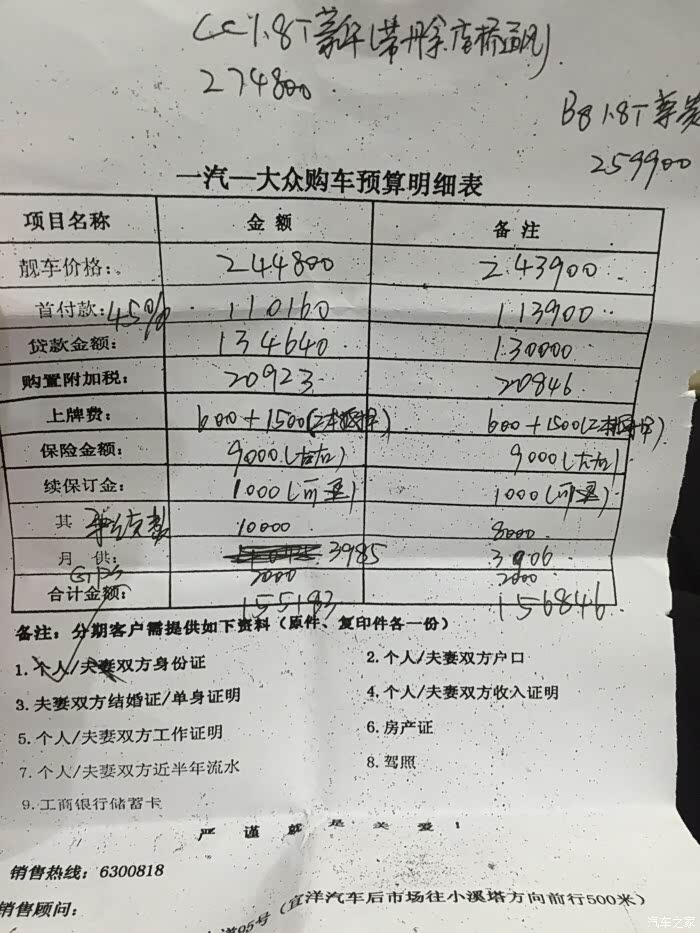 CC 1.8T豪华(带丹余座桥通风)
274800
B8 1.8T 尊贵
259900
一汽一大众购车预算明细表
项目名称 金额 备注
靓车价格: 244800 243900
首付款: 45% 110160 113900
贷款金额: 134640 130000
购置附加税: 20923 20846
上牌费: 600+1500 600+1500
保险金额: 9000(左右) 9000(左右)
续保订金: 1000(可退) 1000(可退)
其 10000 8000
月供: 3985 3906
GPS 2000 2000
合计金额: 155183 156846
备注:分期客户需提供如下资料(原件、复印件各一份)
1.个人/夫妻双方身份证 2.个人/夫妻双方户口
3.夫妻双方结婚证/单身证明 4.个人/夫妻双方收入证明
5.个人/夫妻双方工作证明 6.房产证
7.个人/夫妻双方近半年流水 8.驾照
9.工商银行储蓄卡
严谨就是关爱!
销售热线:6300818
销售顾问:
道95号(宜洋汽车后市场往小溪塔方向前行500米)
汽车之家